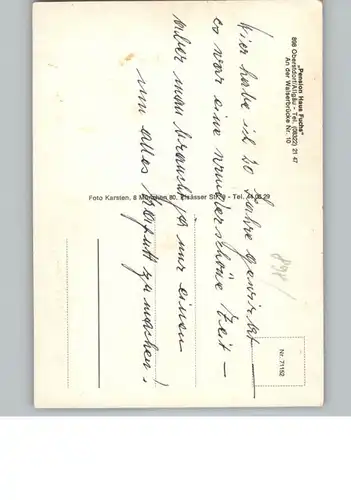 „Pension Haus Fuchs"
898 Oberstdorf/Allgäu - Tel. (08322) 21 47
An der Walserbrücke Nr. 10
Hier habe ich 20 Jahre gewirkt —
es war eine wunderschöne Zeit —
aber man braucht ja nur einen
um alles kaputt zu machen!
Foto Karsten, 8 München 80, Elsässer Str. - Tel. 44 88 29
Nr. 71152
898/